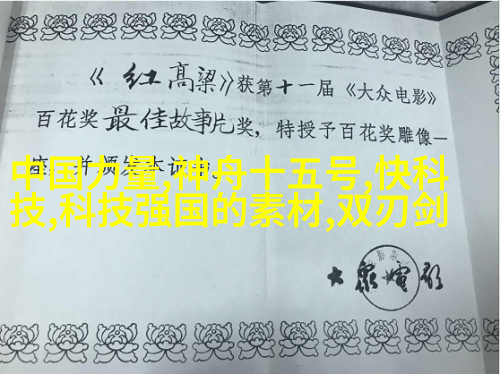 《红高粱》获第十一届《大众电影》
百花奖最佳故事片奖，特授予百花奖雕像一
座，并颁发本证书。
中国力量,神舟十五号,快科
技,科技强国的素材,双刃剑
大众电影